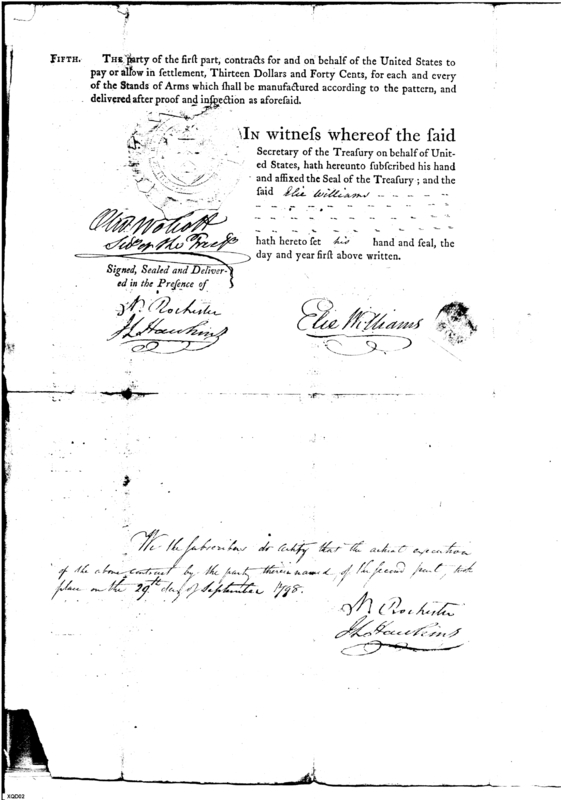 FIFTH. THE party of the firſt part, contracts for and on behalf of the United States to
pay or allow in ſettlement, Thirteen Dollars and Forty Cents, for each and every
of the Stands of Arms which ſhall be manufactured according to the pattern, and
delivered after proof and inſpection as aforeſaid.
IN witneſs whereof the ſaid
Secretary of the Treaſury on behalf of Unit-
ed States, hath hereunto ſubſcribed his hand
and affixed the Seal of the Treaſury; and the
ſaid Elie Williams
hath hereto ſet his hand and ſeal, the
day and year firſt above written.
Olivr Wolcott
of the Treasy
Signed, Sealed and Deliver-
ed in the Preſence of
N. Rochester
Js Hawkins
Elie Williams
We the Subscribers do certify that the actual execution
of the above contract by the party therein named of the second part, took
place on the 29th day of September 1798.
N. Rochester
Js Hawkins
XQD02